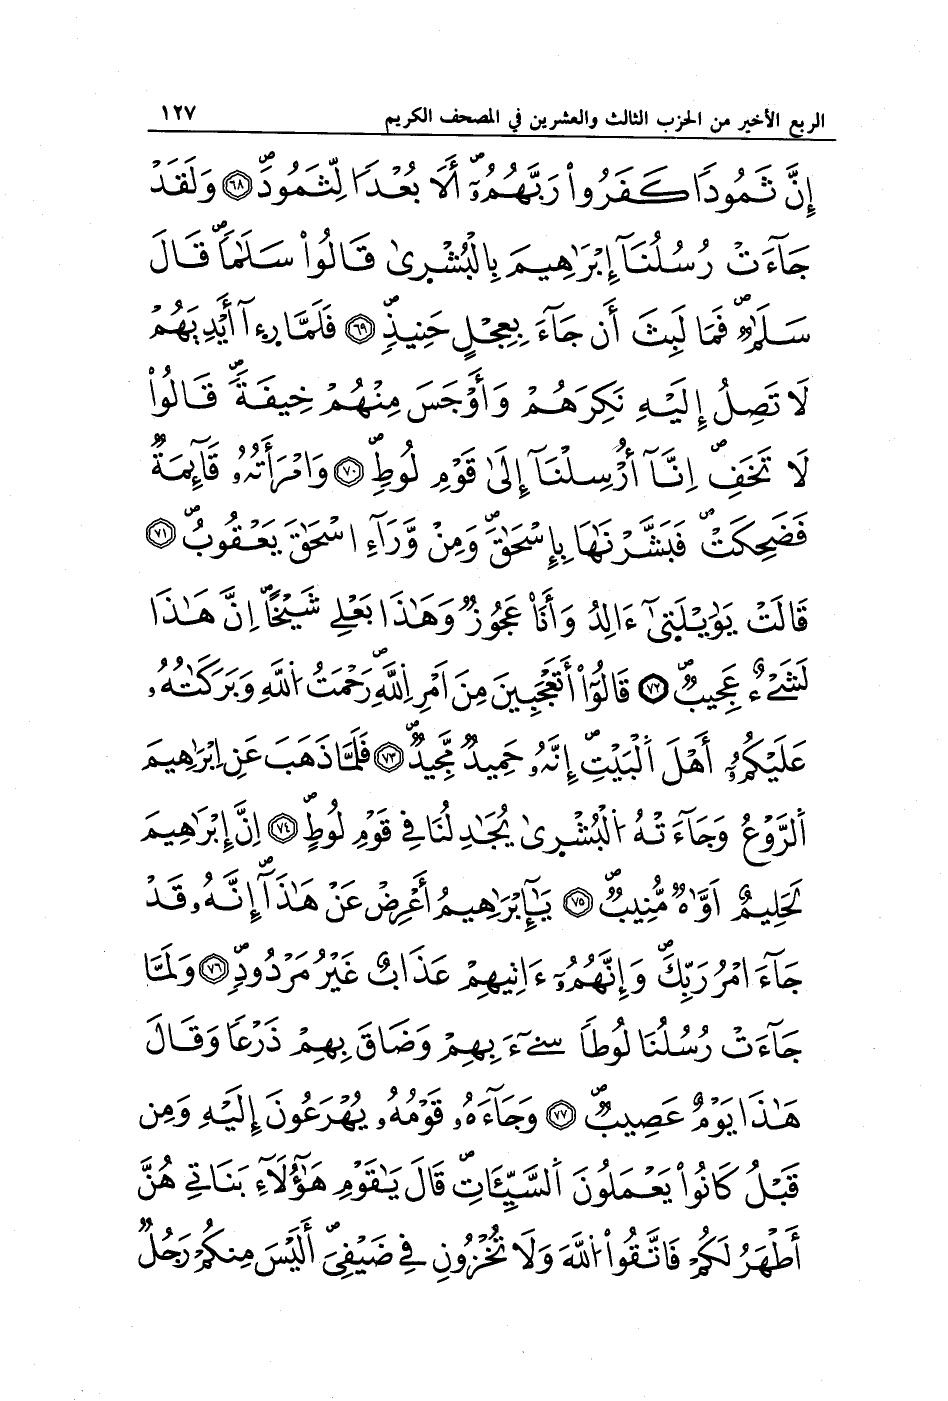 الربع الأخير من الحزب الثالث والعشرين في المصحف الكريم ١٢٧
إِنَّ ثَمُوداً كَفَرُواْ رَبَّهُمُۥٓ أَلَا بُعْداً لِّثَمُودَ ﴿٦٨﴾ وَلَقَدْ
جَآءَتْ رُسُلُنَآ إِبْرَٰهِيمَ بِالْبُشْرِىٰ قَالُواْ سَلَٰماً قَالَ
سَلَٰمٌ فَمَا لَبِثَ أَن جَآءَ بِعِجْلٍ حَنِيذٍ ﴿٦٩﴾ فَلَمَّا رِءِآ أَيْدِيَهُمْ
لَا تَصِلُ إِلَيْهِ نَكِرَهُمْ وَأَوْجَسَ مِنْهُمْ خِيفَةً قَالُواْ
لَا تَخَفِ اِنَّآ أُرْسِلْنَآ إِلَىٰ قَوْمِ لُوطٍ ﴿٧٠﴾ وَامْرَأَتُهُۥ قَآئِمَةٌ
فَضَحِكَتْ فَبَشَّرْنَٰهَا بِإِسْحَٰقَ وَمِنْ وَّرَآءِ اسْحَٰقَ يَعْقُوبُ ﴿٧١﴾
قَالَتْ يَٰوَيْلَتِىٰٓ ءَالِدُ وَأَنَا عَجُوزٌ وَهَٰذَا بَعْلِي شَيْخاً اِنَّ هَٰذَا
لَشَيْءٌ عَجِيبٌ ﴿٧٢﴾ قَالُوٓاْ أَتَعْجَبِينَ مِنَ اَمْرِ اِللَّهِ رَحْمَتُ اُللَّهِ وَبَرَكَٰتُهُۥ
عَلَيْكُمُۥٓ أَهْلَ اَلْبَيْتِ إِنَّهُۥ حَمِيدٌ مَّجِيدٌ ﴿٧٣﴾ فَلَمَّا ذَهَبَ عَنِ اِبْرَٰهِيمَ
اَلرَّوْعُ وَجَآءَتْهُ اُلْبُشْرِىٰ يُجَٰدِلُنَا فِي قَوْمِ لُوطٍ ﴿٧٤﴾ اِنَّ إِبْرَٰهِيمَ
لَحَلِيمٌ اَوَّٰهٌ مُّنِيبٌ ﴿٧٥﴾ يَٰٓإِبْرَٰهِيمُ أَعْرِضْ عَنْ هَٰذَآ إِنَّهُۥ قَدْ
جَآءَ امْرُ رَبِّكَ وَإِنَّهُمُۥٓ ءَاتِيهِمْ عَذَابٌ غَيْرُ مَرْدُودٍ ﴿٧٦﴾ وَلَمَّا
جَآءَتْ رُسُلُنَا لُوطاً سِيٓءَ بِهِمْ وَضَاقَ بِهِمْ ذَرْعاً وَقَالَ
هَٰذَا يَوْمٌ عَصِيبٌ ﴿٧٧﴾ وَجَآءَهُۥ قَوْمُهُۥ يُهْرَعُونَ إِلَيْهِ وَمِن
قَبْلُ كَانُواْ يَعْمَلُونَ اَلسَّيِّئَاتِ قَالَ يَٰقَوْمِ هَٰٓؤُلَآءِ بَنَاتِي هُنَّ
أَطْهَرُ لَكُمْ فَاتَّقُواْ اُللَّهَ وَلَا تُخْزُونِ فِي ضَيْفِيَ أَلَيْسَ مِنكُمْ رَجُلٌ